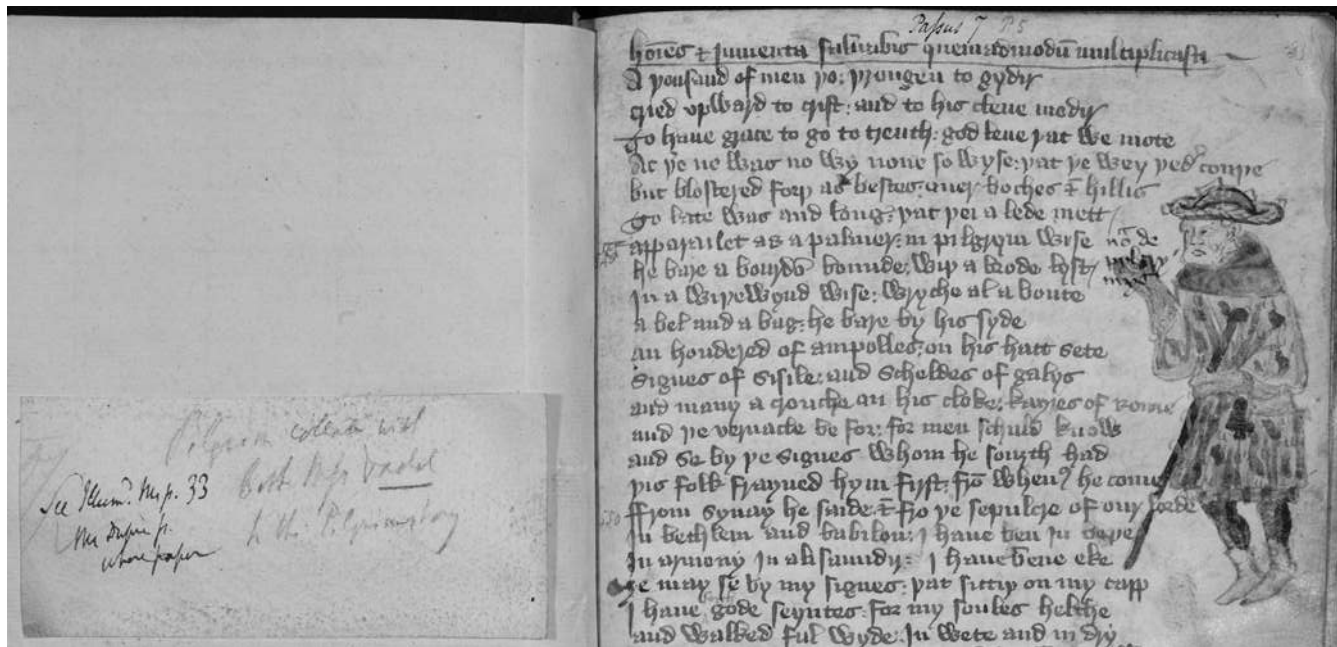 Pilgrim collate with
Both Mss
See Illumd. Ms p. 33
Passus 7
ho̅i̅es & jumenta saluabis quemadmodu̅ multiplicasti
A þousand of men þo: þrongen to gydir
cried vpward to crist: and to his clene modir
To haue grace to go to treuth: god leue þat we mote
Ac þe ne was no wy none so wyse: þat þe wey þed couþe
but blostered forþ as bestes: ouer boches & hillis
To late was and long: þat þei a lede mett
apparailet as a palmer: in pilgrym wise
he bare a bourdo̅ bounde: wiþ a brode lyst
In a wiþewynd wise: wryþe al a boute
a bel and a bag: he bare by his syde
an hondered of ampolles: on his hatt sete
signes of sisile: and scheldes of galys
and many a crouche on his cloke: kayies of rome
and þe vernacle be for: for men schuld knowe
and se by þe signes whom he south had
þis folk frayned hym first: fro̅ when he come
ffrom synay he saide: & fro þe sepulcre of our lorde
In bethlem and babilon: I haue ben in
In armony In alisaundir: I haue bene eke
ȝe may se by my signes: þat sittiþ on my capp
I haue gode seyntes: for my soules helthe
and walked ful wyde: In wete and in dry